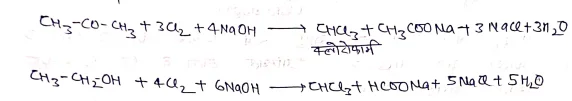 CH₃-CO-CH₃ + 3Cl₂ + 4NaOH ⟶ CHCl₃ + CH₃COONa + 3NaCl + 3H₂O
क्लोरोफार्म
CH₃-CH₂OH + 4Cl₂ + 6NaOH ⟶ CHCl₃ + HCOONa + 5NaCl + 5H₂O